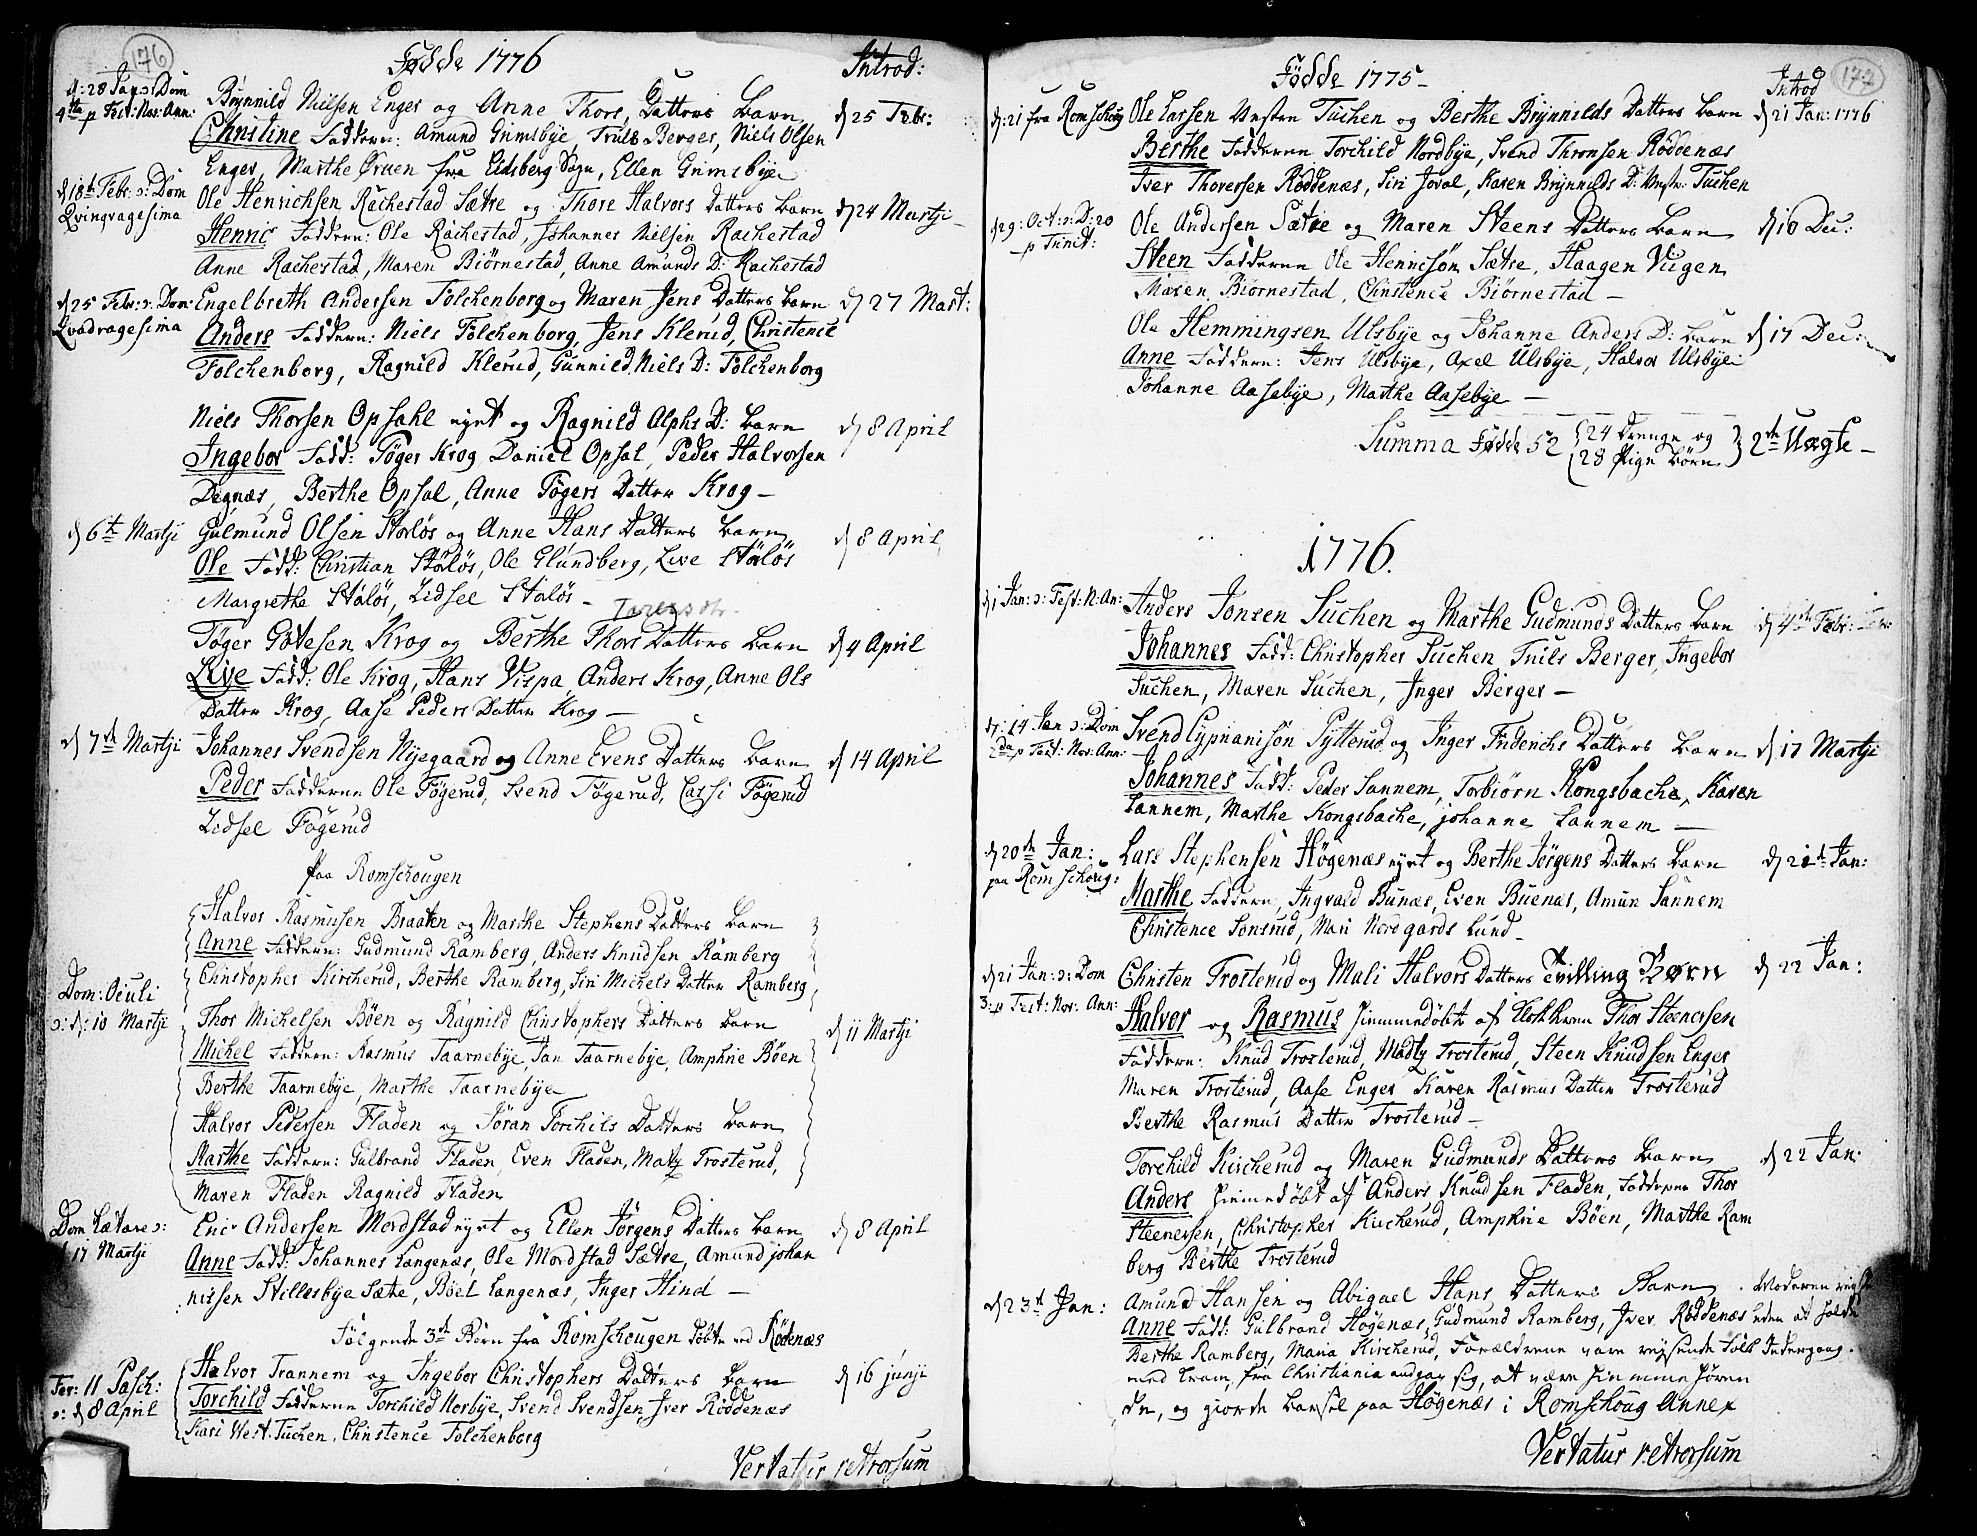 176
Födde 1776
Introd:
d: 28 Jan: ɔ: Dom
4ta p Fest: Nov: Ann:
Brynnild Nielsen Enger og Anne Thors Datters Barn
d 25 Febr:
Christine Faddern: Amund Grimsbye, Truls Berger, Niels Olsen
Enger, Marthe Øruen fra Eidsberg Sogn, Ellen Grimsbye
d 18de Febr: ɔ: Dom
Qvinqvagesima
Ole Henrichsen Rachestad Sætre og Thore Halvors Datters Barn
d 24 Martji
Henric Faddern: Ole Rachestad, Johannes Nielsen Rachestad
Anne Rachestad, Maren Biørnestad, Anne Amunds D: Rachestad
d 25 Febr: ɔ: Dom:
Qvadragesima
Engelbreth Andersen Folchenborg og Maren Jens Datters Barn
d 27 Mart:
Anders Faddern: Niels Folchenborg, Jens Klerud, Christence
Folchenborg, Ragnild Klerud, Gunnild Niels D: Folchenborg
Niels Thorsen Opsahl eyet og Ragnild Alphs D: Barn
d 8 April
Ingebor Fadd: Töger Krog, Daniel Opsal, Peder Halvorsen
Degnæs, Berthe Opsal, Anne Tögers Datter Krog
d 6te Martji
Gulmund Olsen Stöxlös og Anne Hans Datters Barn
d 8 April
Ole Fadd: Christian Stölös, Ole Glundberg, Live Stölös
Margrethe Stölös, Lidsel Stölös
Töger Götesen Krog og Berthe Thors Datters Barn
d 4 April
Live Fadd: Ole Krog, Hans Vispa, Anders Krog, Anne Ols
Datter Krog, Aase Peders Datter Krog
d 7de Martji
Johannes Svendsen Nyegaard og Anne Evens Datters Barn
d 14 April
Peder Fadderne Ole Tögerud, Svend Tögerud, Cassi Tögerud
Lidsel Tögerud
paa Romschougen
Halvor Rasmusen Braaten og Marthe Stephens Datters Barn
Anne Faddern: Gudmund Ramberg, Anders Knudsen Ramberg
Christopher Kircherud, Berthe Ramberg, Siri Michels Datter Ramberg
Dom: Oculi
ɔ: d: 10 Martji
Thor Michelsen Böen og Ragnild Christophers Datters Barn
d 11 Martji
Michel Faddern: Rasmus Taarnebye, Jan Taarnebye, Amphrie Böen
Berthe Taarnebye, Marthe Taarnebye
Halvor Pedersen Fladen og Jöran Torchils Datters Barn
Marthe Faddern: Gulbrand Fladen, Even Fladen, Matz Trosterud,
Maren Fladen Ragnild Fladen
Dom Lætare ɔ:
d 17 Martji
Eric Andersen Mordstad eyet og Ellen Jörgens Datters Barn
d 8 April
Anne Fadd: Johannes Langenæs, Ole Mordstad Sætre, Amund johan
nissen Stillesbye Sætre, Böel Langenæs, Inger Hind
Følgende 3de Børn fra Romschougen döbte ved Rödenæs
Fer: 11 Pasch:
ɔ: d 8 April
Halvor Trannem og Ingebor Christophers Datters Barn
d 16 junji
Torchild Fadderne Torchild Norbye, Svend Svendsen, Iver Röddenæs
Kari West: Tuchen, Christence Folchenborg
Vertatur retrorsum
177
Födde 1775
Introd
d: 21 fra Romschoug
Ole Larsen Vestre Tuchen og Berthe Brynnilds Datters Barn
d 21 Jan: 1776
Berthe Fadderne Torchild Nordbye, Svend Thronsen Röddenæs
Iver Thoversen Röddenæs, Siri Joval, Karen Brynnilds D: Vestr: Tuchen
d 29: Oct: ɔ: D: 20
p Trinit:
Ole Andersen Sætre og Maren Steens Datters Barn
d 10 Dec:
Steen Fadderne Ole Hennisön Sætre, Haagen Vugen
Maren Biornestad, Christence Biørnestad
Ole Hemmingsen Ulsbye og Johanne Anders D: Barn
d 17 Dec:
Anne Faddern: Jens Ulsbye, Axel Ulsbye, Halvor Ulsbye
Johanne Aasebye, Marthe Aasebye
Summa Födde 52 {24 Drenge og
{28 Pige Börn} 2de Uægte
1776.
d 1 Jan: ɔ: Fest: N: An:
Anders Jonsen Tuchen og Marthe Gudmunds Datters Barn
d 4de Febr:
Johannes Fadd: Christopher Tuchen, Truls Berger, Ingebor
Tuchen, Maren Tuchen, Inger Berger
d: 14 Jan ɔ: Dom
2da p Fest: Nov: Ann:
Svend Cyprianisön Pytterud og Inger Friderichs Datters Barn
d 17 Martji
Johannes Fadd: Peder Sannem, Torbiörn Kongsbache, Karen
Sannem, Marthe Kongsbache, johanne Sannem
d 20de Jan:
paa Romschoug:
Lars Stephensen Högenæs eyet og Berthe Jörgens Datters Barn
d 21de Jan:
Marthe Faddern, Ingvald Bunæs, Even Buenæs, Amun Sannem
Christence Sonsrud, Mari Nordgards Lund
d 21 Jan: ɔ: Dom
3: p Fest: Nov: Ann:
Christen Trosterud og Mali Halvors Datters Tvilling Børn
d 22 Jan:
Halvor og Rasmus hiemmedöbte af Klokkeren Thor Steenersen
Faddern: Knud Trosterud, Madtz Trosterud, Steen Knudsen Enger
Maren Trosterud, Aase Enger Karen Rasmus Datter Trosterud
Berthe Rasmus Datter Trosterud
Torchild Kircherud og Maren Gudmunds Datters Barn
d 22 Jan:
Anders hiemedöbt af Anders Knudsen Fladen, Fadderne Thor
Steenersen, Christopher Kircherud, Amphrie Böen, Marthe Ram
berg Berthe Trosterud
d 23de Jan:
Amund Hansen og Abigael Hans Datters Barn
Moderen reyste
Anne Fadd: Gulbrand Högenæs, Gudmund Ramberg, Iver Röddenæs
uden at holde
Berthe Ramberg, Maria Kircherud, Forældrene vare reysende Folk
Indergang.
med Kram, fra Christiania angav sig, at være hiemmehören
de, og giorde barsel paa Högenæs i Romschoug Annex
Vertatur retrorsum